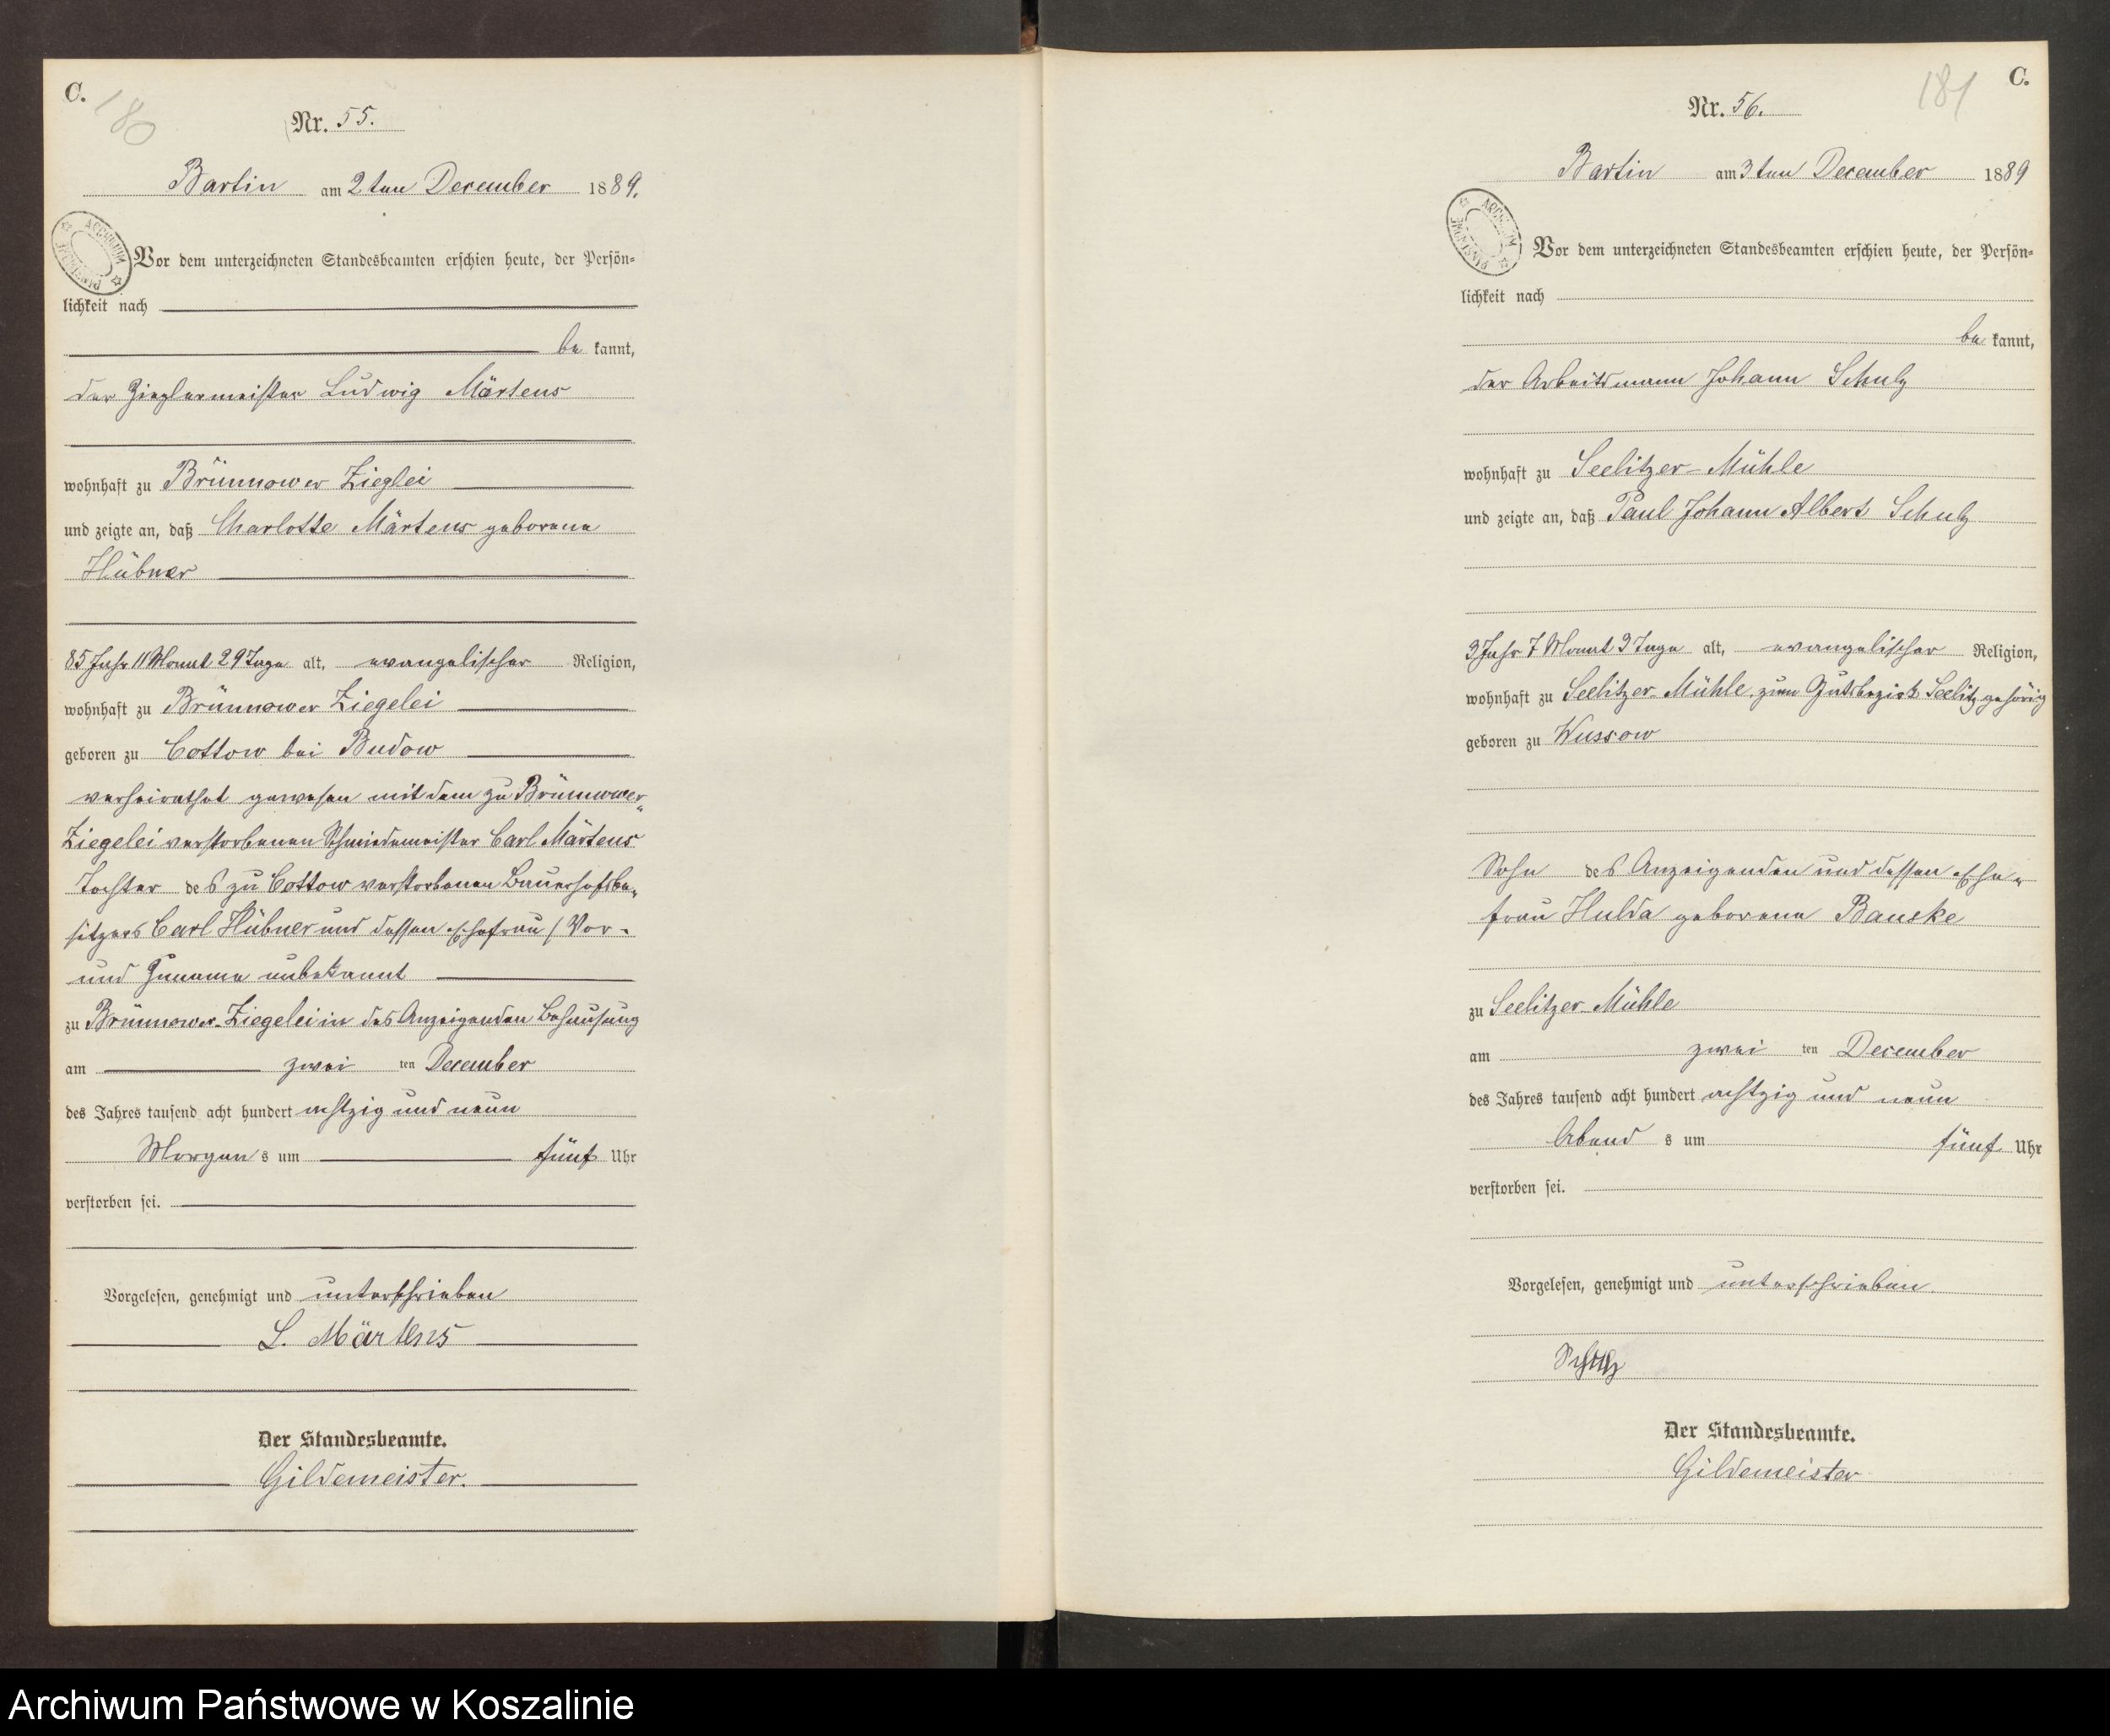 C.
180
Nr. 55.
Bartin am 2ten December 1889.
ARCHIWUM PAŃSTWOWE
Vor dem unterzeichneten Standesbeamten erschien heute, der Persön-
lichkeit nach
be kannt,
der Zieglermeister Ludwig Märtens
wohnhaft zu Brünnower Zieglei
und zeigte an, daß Charlotte Märtens geborene
Hübner
85 Jahr 11 Monat 29 Tage alt, evangelischer Religion,
wohnhaft zu Brünnower Ziegelei
geboren zu Cottow bei Budow
verheirathet gewesen mit dem zu Brünnower-
Ziegelei verstorbenen Schmiedemeister Carl Märtens
Tochter des zu Cottow verstorbenen Bauerhofsbe-
sitzers Carl Hübner und dessen Ehefrau / Vor-
und Zuname unbekannt
zu Brünnower-Ziegelei in des Anzeigenden Behausung
am zwei ten December
des Jahres tausend acht hundert achtzig und neun
Morgen s um fünf Uhr
verstorben sei.
Vorgelesen, genehmigt und unterschrieben
L. Märtens
Der Standesbeamte.
Gildemeister.
C.
181
Nr. 56.
Bartin am 3ten December 1889
ARCHIWUM PAŃSTWOWE
Vor dem unterzeichneten Standesbeamten erschien heute, der Persön-
lichkeit nach
be kannt,
der Arbeitsmann Johann Schulz
wohnhaft zu Seelitzer-Mühle
und zeigte an, daß Paul Johann Albert Schulz
3 Jahr 7 Monat 3 Tage alt, evangelischer Religion,
wohnhaft zu Seelitzer-Mühle, zum Gutsbezirk Seelitz gehörig
geboren zu Wussow
Sohn des Anzeigenden und dessen Ehe-
frau Hulda geborene Banske
zu Seelitzer Mühle
am zwei ten December
des Jahres tausend acht hundert achtzig und neun
Abend s um fünf Uhr
verstorben sei.
Vorgelesen, genehmigt und unterschrieben
Schulz
Der Standesbeamte.
Gildemeister
Archiwum Państwowe w Koszalinie